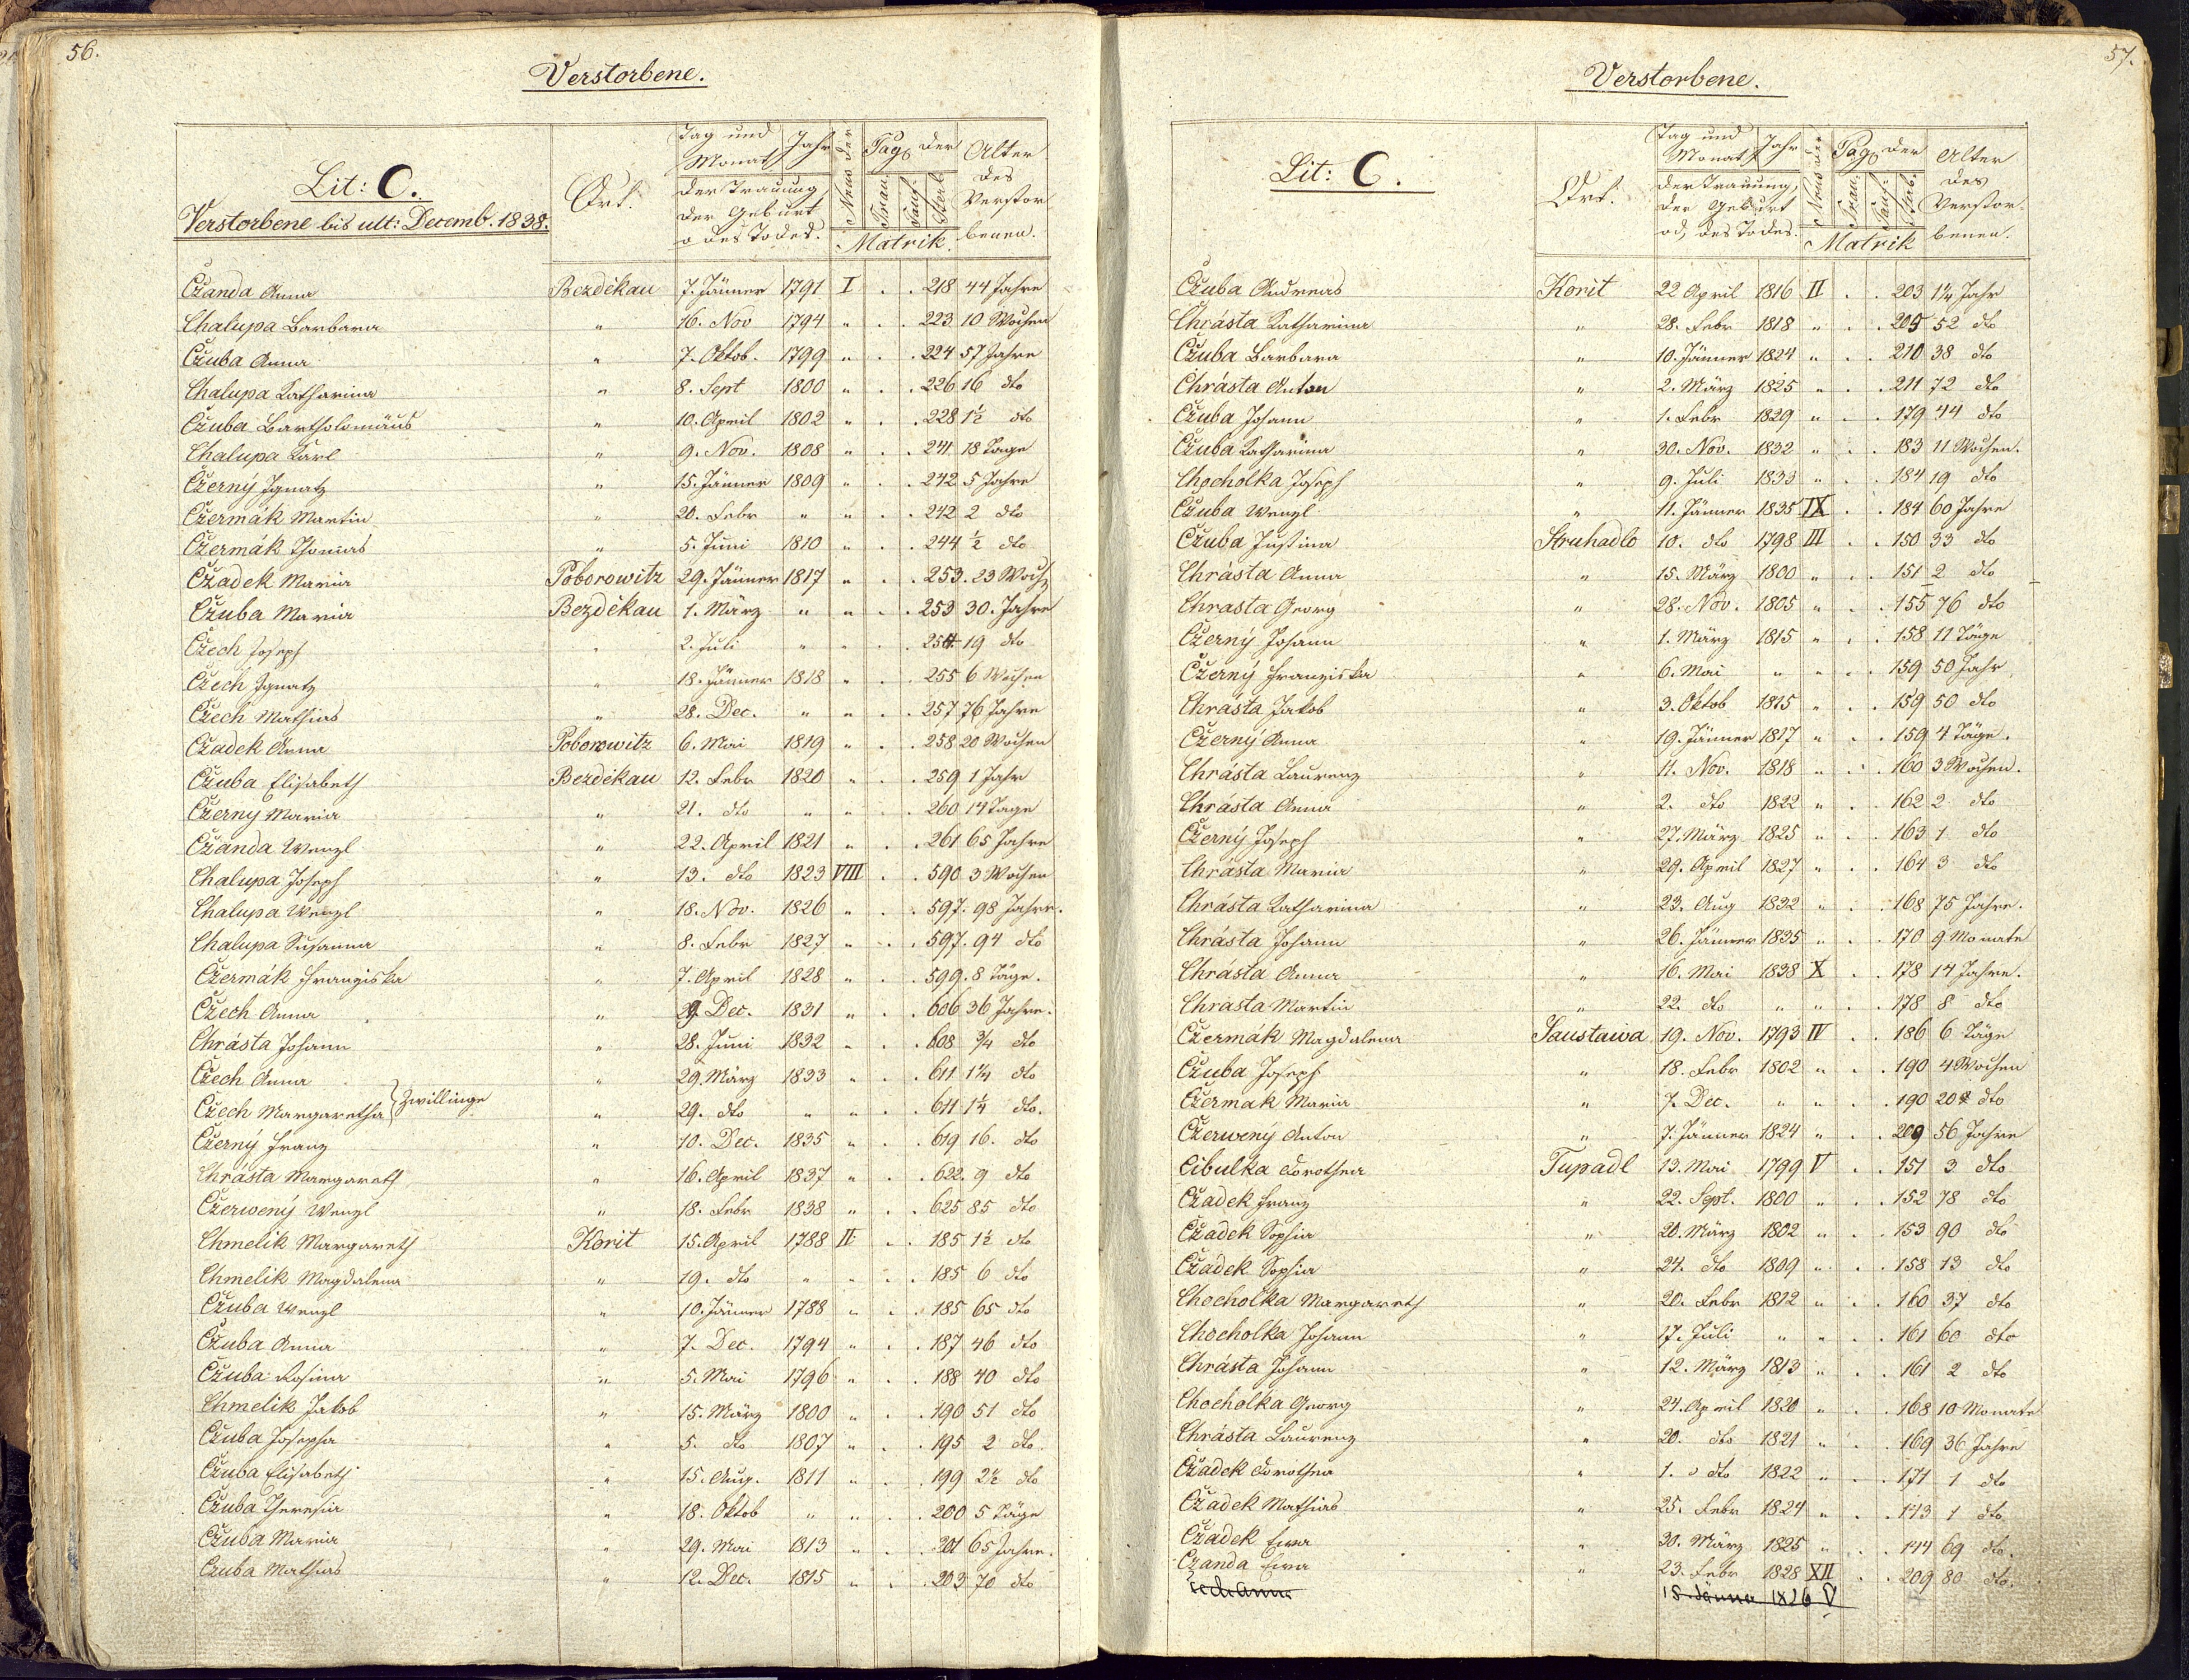 56.
Verstorbene.
Lit: C.
Verstorbene bis ult: Decemb. 1838.
Ort.
Tag und Monat
Jahr
der Trauung, der Geburt o des Todes.
Nrus der
Pag der
Trau. Tauf. Sterb.
Matrik.
Alter des Verstorbenen.
Czanda Anna Bezděkau 7. Jänner 1791 I . . 218 44 Jahre
Chalupa Barbara " 16. Nov 1794 " . . 223 10 Wochen
Czuba Anna " 7. Oktob. 1799 " . . 224 57 Jahre
Chalupa Katharina " 8. Sept 1800 " . . 226 16 dto
Czuba Bartholomäus " 10. April 1802 " . . 228 1½ dto
Chalupa Karl " 9. Nov. 1808 " . . 241. 18 Tage
Czerny Ignatz " 15. Jänner 1809 " . . 242 5 Jahre
Czermák Martin " 20. Febr " " . . 242 2 dto
Czermák Thomas " 5. Juni 1810 " . . 244 ½ dto
Czadek Maria Poborowitz 29. Jänner 1817 " . . 253. 23 Woch
Czuba Maria Bezděkau 1. März " " . . 253 30. Jahre
Czech Joseph " 2. Juli " " . . 254 19 dto
Czech Ignatz " 18. Jänner 1818 " . . 255 6 Wochen
Czech Mathias " 28. Dec. " " . . 257 76 Jahre
Czadek Anna Poborowitz 6. Mai 1819 " . . 258 20 Wochen
Czuba Elisabeth Bezděkau 12. Febr 1820 " . . 259 1 Jahr
Czerny Maria " 21. dto " " . . 260 14 Tage
Czanda Wenzl " 22. April 1821 " . . 261 65 Jahre
Chalupa Joseph " 13. dto 1823 VIII . . 590 3 Wochen
Chalupa Wenzl " 18. Nov. 1826 " . . 597. 98 Jahre.
Chalupa Susanna " 8. Febr 1827 " . . 597. 94 dto
Czermák Franziska " 7. April 1828 " . . 599. 8 Täge.
Czech Anna " 29. Dec. 1831 " . . 606 36 Jahre.
Chrásta Johann " 28. Juni 1832 " . . 608 ¾ dto
Czech Anna " 29. März 1833 " . . 611 1¼ dto
Czech Margaretha } Zwillinge " 29. dto " " . . 611 1¼ dto.
Czerný Franz " 10. Dec. 1835 " . . 619 16. dto
Chrásta Margareth " 16. April 1837 " . . 622. 9 dto
Czerwený Wenzl " 18. Febr 1838 " . . 625 85 dto
Chmelik Margareth Korit 15. April 1788 II . . 185 1½ dto
Chmelik Magdalena " 19. dto " " . . 185 6 dto
Czuba Wenzl " 10. Jänner 1788 " . . 185 65 dto
Czuba Anna " 7. Dec. 1794 " . . 187 46 dto
Czuba Rosina " 5. Mai 1796 " . . 188 40 dto
Chmelik Jakob " 15. März 1800 " . . 190 51 dto
Czuba Josepha " 5. dto 1807 " . . 195 2 dto.
Czuba Elisabeth " 15. Aug. 1811 " . . 199 2½ dto
Czuba Theresia " 18. Oktob " " . . 200 5 Täge
Czuba Maria " 29. Mai 1813 " . . 201 65 Jahre.
Czuba Mathias " 12. Dec. 1815 " . . 203 70 dto
57.
Verstorbene.
Lit: C.
Ort.
Tag und Monat
Jahr
der Trauung, der Geburt od, des Todes.
Nrus der
Pag der
Trau. Tauf. Sterb.
Matrik
Alter des Verstorbenen.
Czuba Andreas Korit 22 April 1816 II . . 203 1¼ Jahr
Chrásta Katharina " 28. Febr 1818 " . . 205 52 dto
Czuba Barbara " 10. Jänner 1824 " . . 210 38 dto
Chrásta Anton " 2. März 1825 " . . 211 72 dto
Czuba Johann " 1. Febr 1829 " . . 179 44 dto
Czuba Katharina " 30. Nov. 1832 " . . 183 11 Wochen.
Chocholka Joseph " 9. Juli 1833 " . . 184 19 dto
Czuba Wenzl " 11. Jänner 1835 IX . . 184 60 Jahre
Czuba Justina Struhadlo 10. dto 1798 III . . 150 33 dto
Chrásta Anna " 15. März 1800 " . . 151 2 dto
Chrasta Georg " 28. Nov. 1805 " . . 155 76 dto
Czerný Johann " 1. März 1815 " . . 158 11 Täge
Czerný Franziska " 6. Mai " " . . 159 50 Jahr
Chrásta Jakob " 3. Oktob 1815 " . . 159 50 dto
Czerný Anna " 19. Jänner 1817 " . . 159 4 Täge.
Chrásta Laurenz " 11. Nov. 1818 " . . 160 3 Wochen.
Chrásta Anna " 2. dto 1822 " . . 162 2 dto
Czerný Joseph " 27. März 1825 " . . 163 1 dto
Chrásta Maria " 29. April 1827 " . . 164 3 dto
Chrásta Katharina " 23. Aug 1832 " . . 168 75 Jahre.
Chrásta Johann " 26. Jänner 1835 " . . 170 9 Monate
Chrásta Anna " 16. Mai 1838 X . . 178 14 Jahre.
Chrasta Martin " 22. dto " " . . 178 8 dto
Czermák Magdalena Saustawa 19. Nov. 1793 IV . . 186 6 Täge
Czuba Joseph " 18. Febr 1802 " . . 190 4 Wochen
Czermak Maria " 7. Dec. " " . . 190 20 dto
Czerwený Anton " 7. Jänner 1824 " . . 209 56 Jahre
Cibulka Dorothea Tupadl 13. Mai 1799 V . . 151 3 dto
Czadek Franz " 22. Sept. 1800 " . . 152 78 dto
Czadek Sophia " 20. März 1802 " . . 153 90 dto
Czadek Sophia " 24. dto 1809 " . . 158 13 dto
Chocholka Margareth " 20. Febr 1812 " . . 160 37 dto
Chocholka Johann " 17. Juli " " . . 161 60 dto
Chrásta Johann " 12. März 1813 " . . 161 2 dto
Chocholka Georg " 24. April 1820 " . . 168 10 Monate
Chrásta Laurenz " 20. dto 1821 " . . 169 36 Jahre
Czadek Dorothea " 1. dto 1822 " . . 171 1 dto
Czadek Mathias " 25. Febr 1824 " . . 143 1 dto
Czadek Ewa " 30. März 1825 " . . 144 69 dto.
Czanda Ewa " 23. Febr 1828 XII . . 209 80 dto.
18. Jänner 1826 V